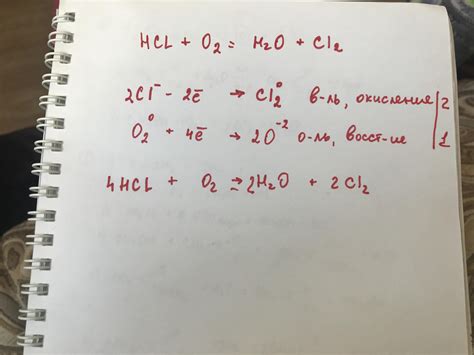 HCL + O₂ = H₂O + Cl₂
2Cl⁻ - 2ē → Cl₂⁰ в-ль, окисление | 2
O₂⁰ + 4ē → 2O⁻² о-ль, восст-ие | 1
4HCL + O₂ → 2H₂O + 2Cl₂